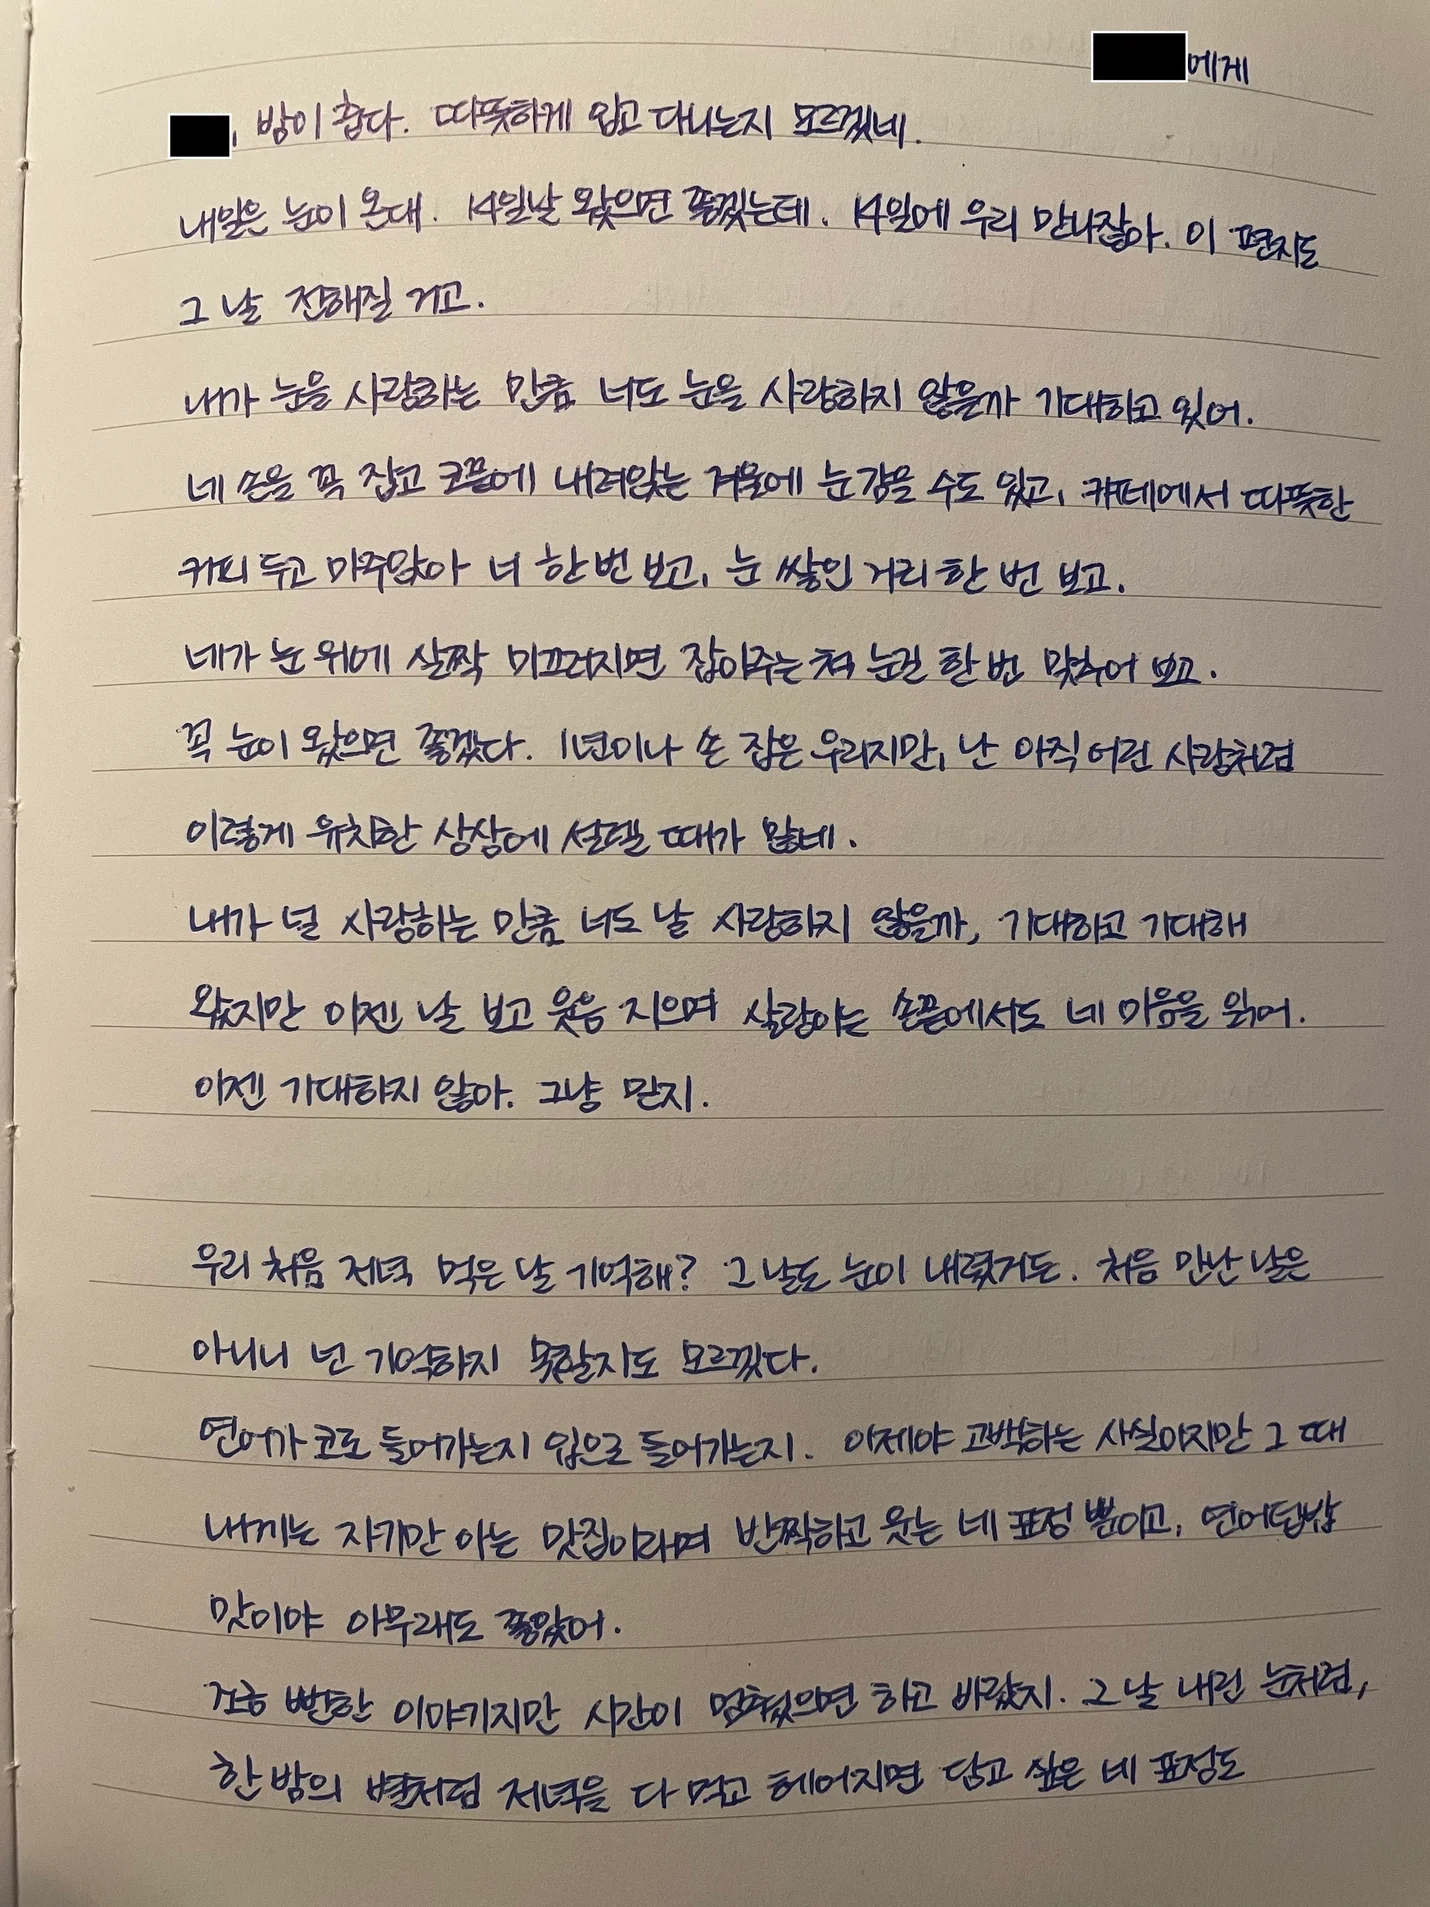 에게
, 밤이 춥다. 따뜻하게 입고 다니는지 모르겠네.
내일은 눈이 온대. 14일날 왔으면 좋겠는데. 14일에 우리 만나잖아. 이 편지도
그 날 전해질 거고.
내가 눈을 사랑하는 만큼 너도 눈을 사랑하지 않을까 기대하고 있어.
네 손을 꼭 잡고 코끝에 내려앉는 겨울에 눈 감을 수도 있고, 카페에서 따뜻한
커피 두고 마주앉아 너 한 번 보고, 눈 쌓인 거리 한 번 보고.
네가 눈 위에 살짝 미끄러지면 잡아주는 척 눈길 한 번 맞추어 보고.
꼭 눈이 왔으면 좋겠다. 1년이나 손 잡은 우리지만, 난 아직 어린 사람처럼
이렇게 유치한 상상에 설렐 때가 많네.
내가 널 사랑하는 만큼 너도 날 사랑하지 않을까, 기대하고 기대해
왔지만 이젠 날 보고 웃음 지으며 살랑이는 손끝에서도 네 마음을 읽어.
이젠 기대하지 않아. 그냥 믿지.
우리 처음 저녁 먹은 날 기억해? 그 날도 눈이 내렸거든. 처음 만난 날은
아니니 넌 기억하지 못할지도 모르겠다.
연어가 코로 들어가는지 입으로 들어가는지. 이제야 고백하는 사실이지만 그 때
내게는 자기만 아는 맛집이라며 반짝하고 웃는 네 표정 뿐이고, 연어덮밥
맛이야 아무래도 좋았어.
뻔한 이야기지만 시간이 멈췄으면 하고 바랐지. 그 날 내린 눈처럼,
한 밤의 별처럼 저녁을 다 먹고 헤어지면 담고 싶은 네 표정도